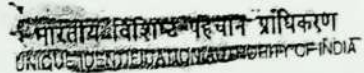 भारतीय विशिष्ट पहचान प्राधिकरण
UNIQUE IDENTIFICATION AUTHORITY OF INDIA